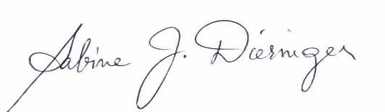 Sabine J. Dieringer